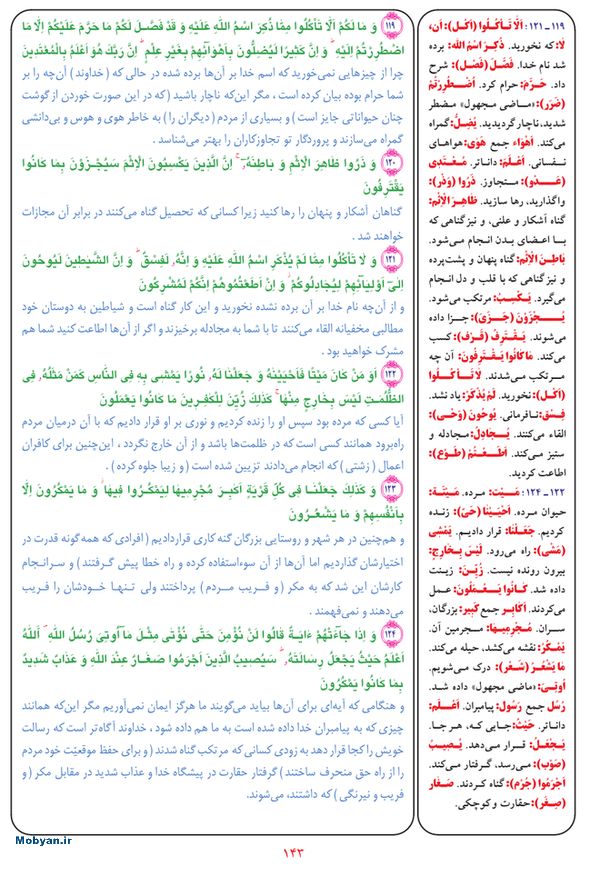 ۱۱۹ - ۱۲۱: اَلّا تَأکُلُوا (أکل): أن،
لا: که نخورید. ذُکِرَ اسْمُ الله: برده
شد نام خدا. فَصَّلَ (فَصَلَ): شرح
داد. حَرَّمَ: حرام کرد. اُضْطُرِرْتُمْ
(ضَرَرَ): «ماضی مجهول» مضطر
شدید، ناچار گردیدید. یُضِلُّ: گمراه
می‌کند. اَهْواء جمع هَوٰی: هواهای
نفسانی. أعْلَمُ: داناتر. مُعْتَدی
(عَدو): متجاوز. ذَرُوا (وَذَرَ):
واگذارید، رها سازید. ظاهِرَ الْاِثْمِ:
گناه آشکار و علنی، و نیز گناهی که
با اعضای بدن انجام می‌شود.
باطِنَ الْاِثْمِ: گناه پنهان و پشت‌پرده
و نیز گناهی که با قلب و دل انجام
می‌گیرد. یَکْسِبُ: مرتکب می‌شود.
یُجْزَوْنَ (جَزَیَ): جزا داده
می‌شوند. یَقْتَرِفُ (قَرَفَ): کسب
می‌کند. ما کانُوا یَقْتَرِفُونَ: آن چه
مرتکب می‌شدند. لا تَأکُلُوا
(أکل): نخورید. لَمْ یُذْکَرْ: یاد نشد.
فِسْق: نافرمانی. یُوحُونَ (وَحَیَ):
القاء می‌کنند. یُجادِلُ: مجادله و
ستیز می‌کند. أطَعْتُمْ (طَوَعَ):
اطاعت کردید.
۱۲۲ - ۱۲۴: مَیْت: مرده. مَیْتَة:
حیوان مرده. أحْیَیْنا (حَیَّ): زنده
کردیم. جَعَلْنا: قرار دادیم. یَمْشی
(مَشَی): راه می‌رود. لَیْسَ بِخارِجٍ:
بیرون رونده نیست. زُیِّنَ: زینت
داده شد. کانُوا یَعْمَلُونَ: عمل
می‌کردند. أکابِر جمع کَبیر: بزرگان،
سران. مُجْرِمیها: مجرمین آن.
یَمْکُرُ: نقشه می‌کشد، حیله می‌کند.
ما یَشْعُرُ (شَعَرَ): درک می‌شویم.
أُوتِیَ: «ماضی مجهول» داده شد.
رُسُل جمع رَسُول: پیامبران. أعْلَمُ:
داناتر. حَیْثُ: جایی که، هر جا.
یَجْعَلُ: قرار می‌دهد. یُصیبُ
(صَوَبَ): می‌رسد، گرفتار می‌کند.
أجْرَمُوا (جُرم): گناه کردند. صَغار
(صِغَر): حقارت و کوچکی.
۱۱۹ وَ مَا لَکُمْ اَلَّا تَأْکُلُوا مِمَّا ذُکِرَ اسْمُ اللّٰهِ عَلَیْهِ وَ قَدْ فَصَّلَ لَکُمْ مَا حَرَّمَ عَلَیْکُمْ اِلَّا مَا
اضْطُرِرْتُمْ اِلَیْهِ وَ اِنَّ کَثیرًا لَیُضِلُّونَ بِاَهْوَآئِهِمْ بِغَیْرِ عِلْمٍ اِنَّ رَبَّکَ هُوَ اَعْلَمُ بِالْمُعْتَدینَ
چرا از چیزهایی نمی‌خورید که اسم خدا بر آن‌ها برده شده در حالی که (خداوند) آن‌چه را بر
شما حرام بوده بیان کرده است، مگر این‌که ناچار باشید (که در این صورت خوردن از گوشت
چنان حیواناتی جایز است) و بسیاری از مردم (دیگران را) به خاطر هوی و هوس و بی‌دانشی
گمراه می‌سازند و پروردگار تو تجاوزکاران را بهتر می‌شناسد.
۱۲۰ وَ ذَرُوا ظَاهِرَ الْاِثْمِ وَ بَاطِنَهُ اِنَّ الَّذینَ یَکْسِبُونَ الْاِثْمَ سَیُجْزَوْنَ بِمَا کَانُوا
یَقْتَرِفُونَ
گناهان آشکار و پنهان را رها کنید زیرا کسانی که تحصیل گناه می‌کنند در برابر آن مجازات
خواهند شد.
۱۲۱ وَ لَا تَأْکُلُوا مِمَّا لَمْ یُذْکَرِ اسْمُ اللّٰهِ عَلَیْهِ وَ اِنَّهُ لَفِسْقٌ وَ اِنَّ الشَّیٰطینَ لَیُوحُونَ
اِلٰی اَوْلِیَآئِهِمْ لِیُجَادِلُوکُمْ وَ اِنْ اَطَعْتُمُوهُمْ اِنَّکُمْ لَمُشْرِکُونَ
و از آن‌چه نام خدا بر آن برده نشده نخورید و این کار گناه است و شیاطین به دوستان خود
مطالبی مخفیانه القاء می‌کنند تا با شما به مجادله برخیزند و اگر از آن‌ها اطاعت کنید شما هم
مشرک خواهید بود.
۱۲۲ اَوَ مَنْ کَانَ مَیْتًا فَاَحْیَیْنَاهُ وَ جَعَلْنَا لَهُ نُورًا یَمْشی بِهِ فِی النَّاسِ کَمَنْ مَثَلُهُ فِی
الظُّلُمَاتِ لَیْسَ بِخَارِجٍ مِنْهَا کَذٰلِکَ زُیِّنَ لِلْکٰفِرینَ مَا کَانُوا یَعْمَلُونَ
آیا کسی که مرده بود سپس او را زنده کردیم و نوری بر او قرار دادیم که با آن درمیان مردم
راه‌برود همانند کسی است که در ظلمت‌ها باشد و از آن خارج نگردد، این‌چنین برای کافران
اعمال (زشتی) که انجام می‌دادند تزیین شده است (و زیبا جلوه کرده).
۱۲۳ وَ کَذٰلِکَ جَعَلْنَا فی کُلِّ قَرْیَةٍ اَکَابِرَ مُجْرِمیهَا لِیَمْکُرُوا فیهَا وَ مَا یَمْکُرُونَ اِلَّا
بِاَنْفُسِهِمْ وَ مَا یَشْعُرُونَ
و هم‌چنین در هر شهر و روستایی بزرگان گنه کاری قراردادیم (افرادی که همه‌گونه قدرت در
اختیارشان گذاردیم اما آن‌ها از آن سوءاستفاده کرده و راه خطا پیش گرفتند) و سرانجام
کارشان این شد که به مکر (و فریب مردم) پرداختند ولی تنها خودشان را فریب
می‌دهند و نمی‌فهمند.
۱۲۴ وَ اِذَا جَآءَتْهُمْ ءَایَةٌ قَالُوا لَنْ نُؤْمِنَ حَتّٰی نُؤْتٰی مِثْلَ مَآ اُوتِیَ رُسُلُ اللّٰهِ اَللّٰهُ
اَعْلَمُ حَیْثُ یَجْعَلُ رِسَالَتَهُ سَیُصیبُ الَّذینَ اَجْرَمُوا صَغَارٌ عِنْدَ اللّٰهِ وَ عَذَابٌ شَدیدٌ
بِمَا کَانُوا یَمْکُرُونَ
و هنگامی که آیه‌ای برای آن‌ها بیاید می‌گویند ما هرگز ایمان نمی‌آوریم مگر این‌که همانند
چیزی که به پیامبران خدا داده شده است به ما هم داده شود، خداوند آگاه‌تر است که رسالت
خویش را کجا قرار دهد به زودی کسانی که مرتکب گناه شدند (و برای حفظ موقعیّت خود مردم
را از راه حق منحرف ساختند) گرفتار حقارت در پیشگاه خدا و عذاب شدید در مقابل مکر (و
فریب و نیرنگی) که داشتند، می‌شوند.
Mobyan.ir
۱۴۳